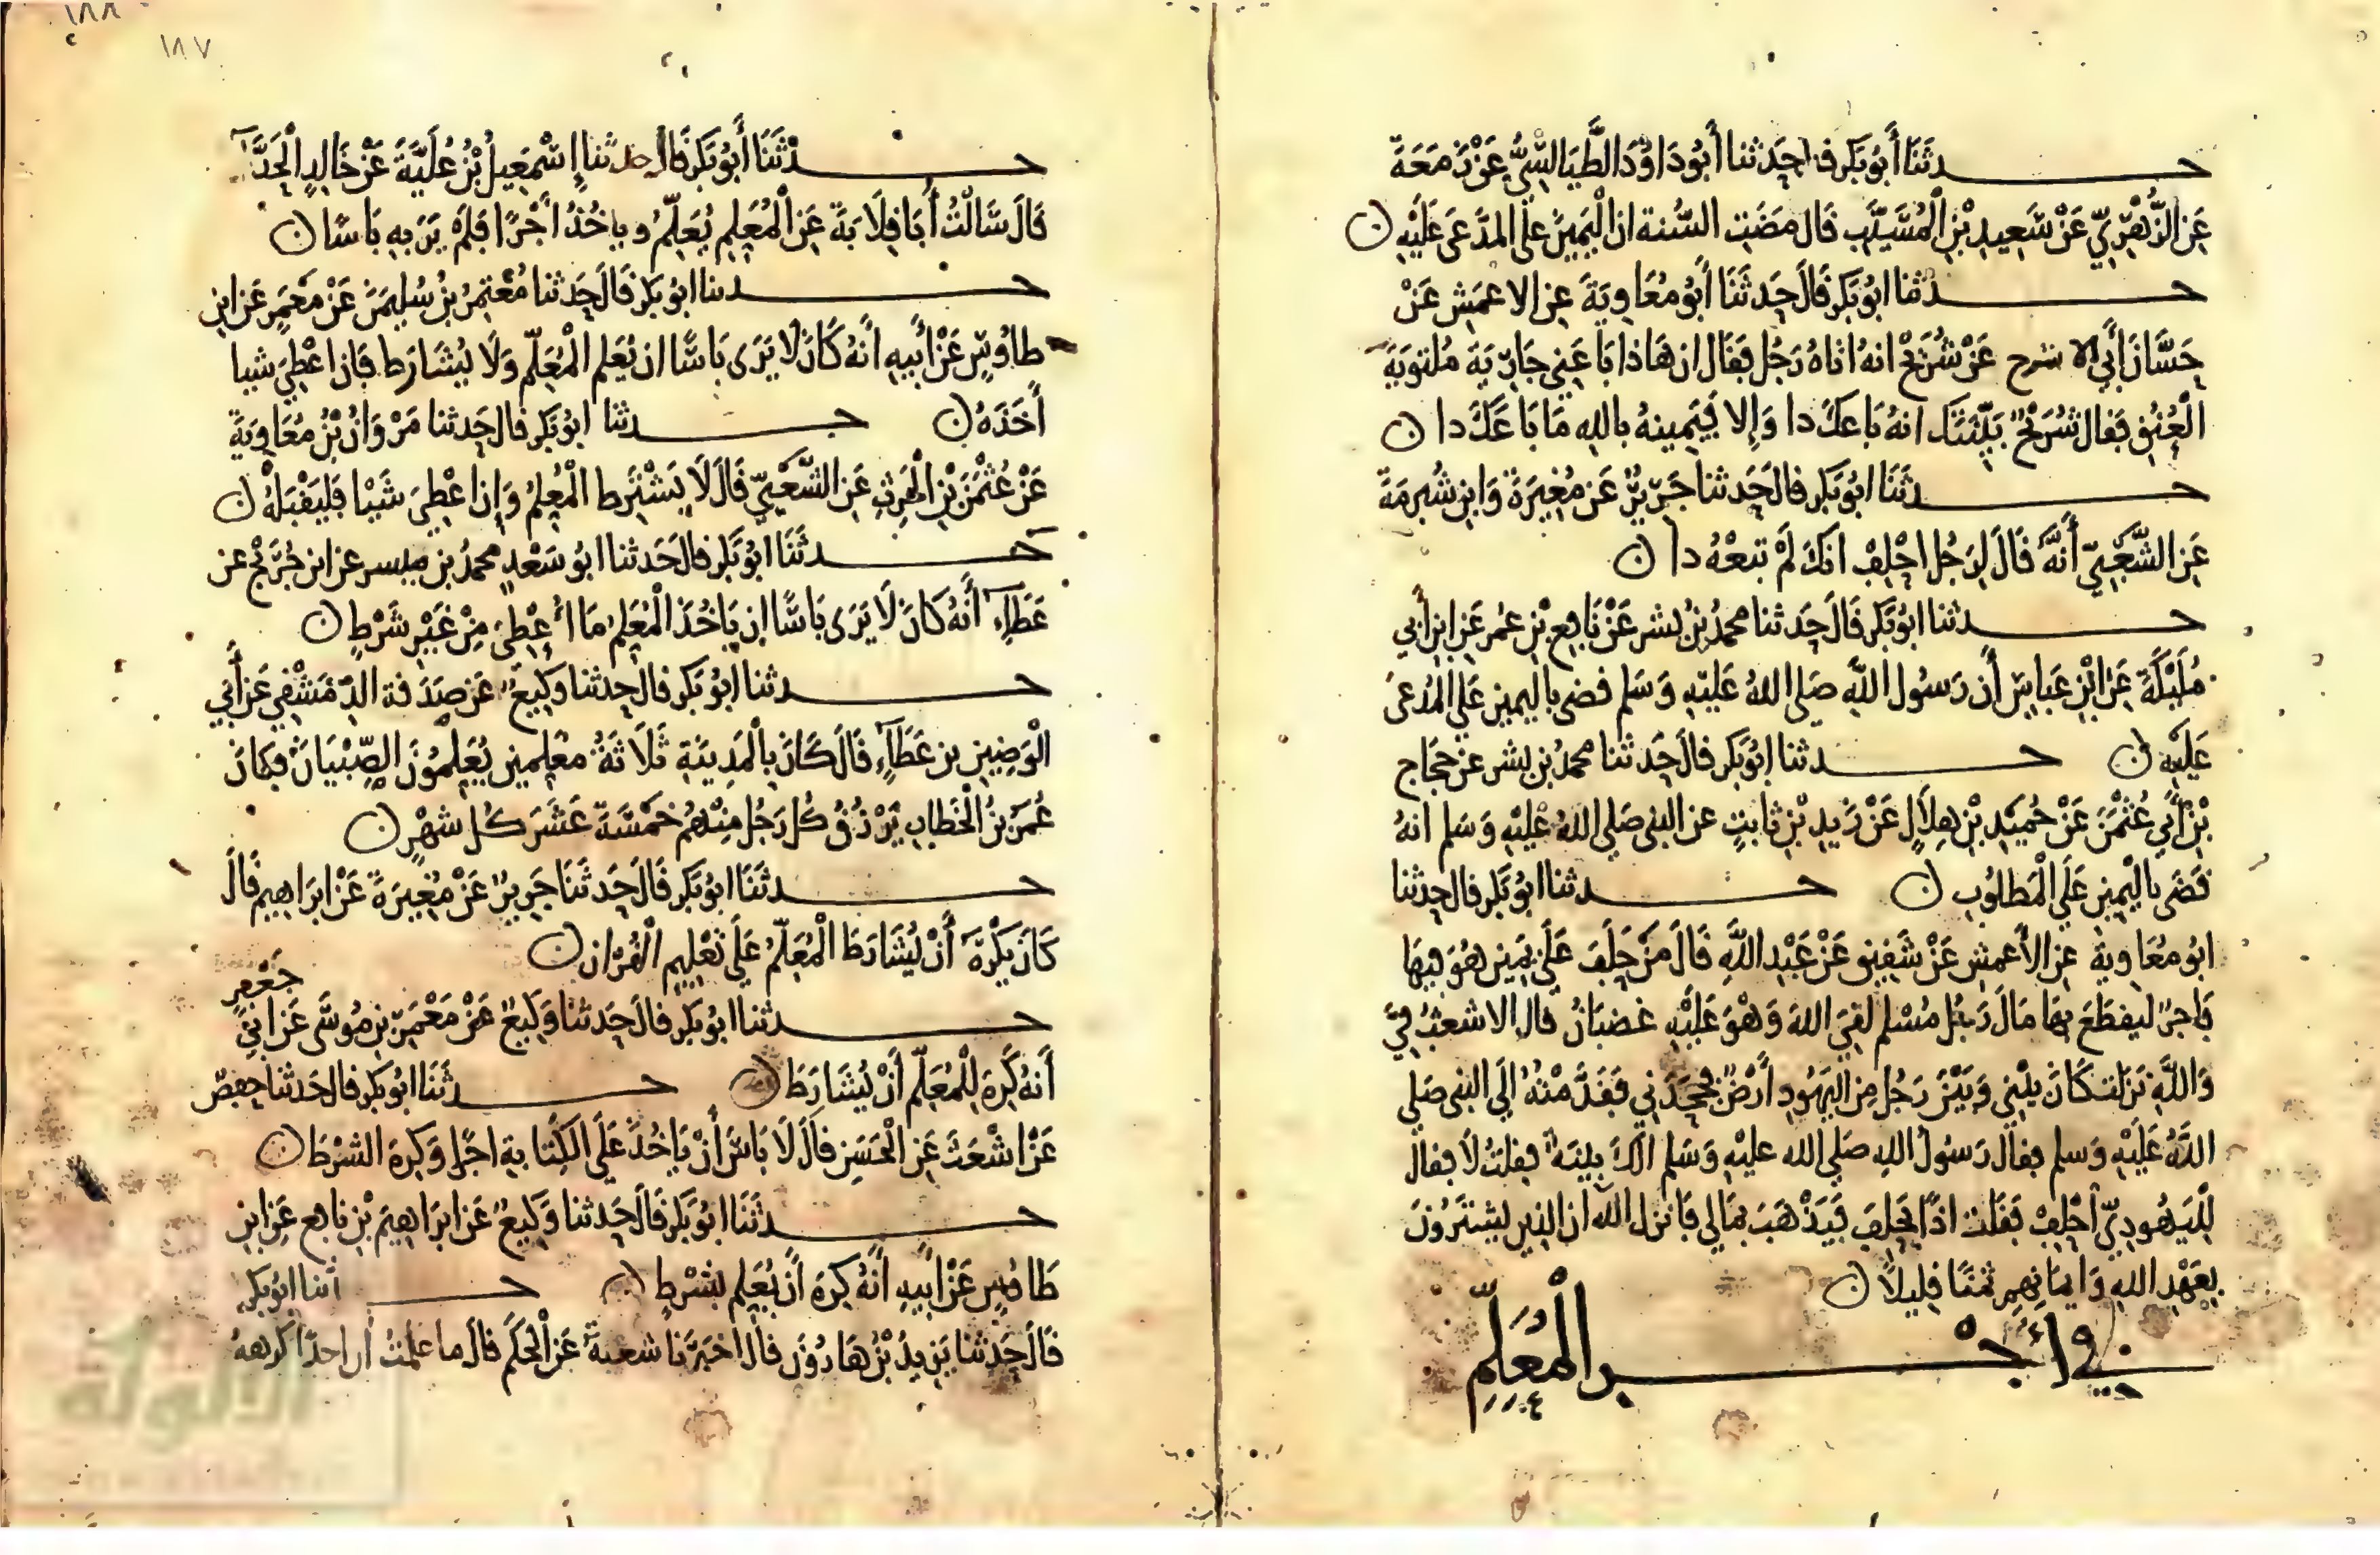 حدثنا أبو بكر قال حدثنا أبو داود الطيالسي عن زمعة
عن الزهري عن سعيد بن المسيب قال مضت السنة ان اليمين على المدعى عليه ن
حدثنا ابو بكر قال حدثنا أبو معاوية عن الاعمش عن
حسان أبي الاشرح عن شريح انه اتاه رجل فقال ان هاذا باعني جارية ملتوية
العنق فقال شريح بينتك انه باعك دا وإلا فيمينه بالله ما باعك دا ن
حدثنا ابو بكر قال حدثنا جرير عن مغيرة وابن شبرمة
عن الشعبي أنه قال لرجل احلف انك لم تبعه دا ن
حدثنا ابو بكر قال حدثنا محمد بن بشر عن نافع بن عمر عن ابن أبي
مليكة عن ابن عباس أن رسول الله صلى الله عليه وسلم قضى باليمين على المدعى
عليه ن حدثنا ابو بكر قال حدثنا محمد بن بشر عن حجاج
بن أبي عثمن عن حميد بن هلال عن زيد بن ثابت عن النبي صلى الله عليه وسلم انه
قضى باليمين على المطلوب ن حدثنا ابو بكر قال حدثنا
ابو معاوية عن الأعمش عن شفيق عن عبد الله قال من حلف على يمين هو فيها
فاجر ليقطع بها مال رجل مسلم لقي الله وهو عليه غضبان قال الاشعث في
والله نزلت كان بيني وبين رجل من اليهود أرض فجحدني فقدمته إلى النبي صلى
الله عليه وسلم فقال رسول الله صلى الله عليه وسلم الك بينة فقلت لا فقال
لليهودي احلف فقلت اذًا يحلف فيذهب بمالي فانزل الله ان الذين يشترون
بعهد الله وايمانهم ثمنًا قليلًا ن
في أجر المعلم
١٨٨
١٨٧
حدثنا أبو بكر قال حدثنا إسمعيل بن علية عن خالد الحذاء
قال سألت أبا قلابة عن المعلم يعلم وياخذ أجرًا فلم ير به باسًا ن
حدثنا ابو بكر قال حدثنا معتمر بن سليمن عن معمر عن ابن
طاوس عن أبيه أنه كان لا يرى باسًا ان يعلم المعلم ولا يشارط فان اعطي شيا
أخذه ن حدثنا ابو بكر قال حدثنا مروان بن معاوية
عن عثمن بن الحرث عن الشعبي قال لا يشترط المعلم وإن اعطي شيئا فليقبله ن
حدثنا ابو بكر قال حدثنا ابو سعد محمد بن ميسر عن ابن جريج عن
عطاء أنه كان لا يرى باسًا ان ياخذ المعلم ما أعطي من غير شرط ن
حدثنا ابو بكر قال حدثنا وكيع عن صدقة الدمشقي عن أبي
الوضين بن عطاء قال كان بالمدينة ثلاثة معلمين يعلمون الصبيان فكان
عمر بن الخطاب يرزق كل رجل منهم خمسة عشر كل شهر ن
حدثنا ابو بكر قال حدثنا جرير عن مغيرة عن ابراهيم قال
كان يكره أن يشارط المعلم على تعليم القران ن
حدثنا ابو بكر قال حدثنا وكيع عن معمر بن موسى عن ابي جعفر
أنه كره للمعلم أن يشارط ن حدثنا ابو بكر قال حدثنا حفص
عن اشعث عن الحسن قال لا باس أن ياخذ على الكتابة اجرًا وكره الشرط ن
حدثنا ابو بكر قال حدثنا وكيع عن ابراهيم بن نافع عن ابن
طاوس عن أبيه أنه كره أن يعلم بشرط ن حدثنا ابو بكر
قال حدثنا يزيد بن هارون قال اخبرنا شعبة عن الحكم قال ما علمت أن احدًا كرهه
الألوكة